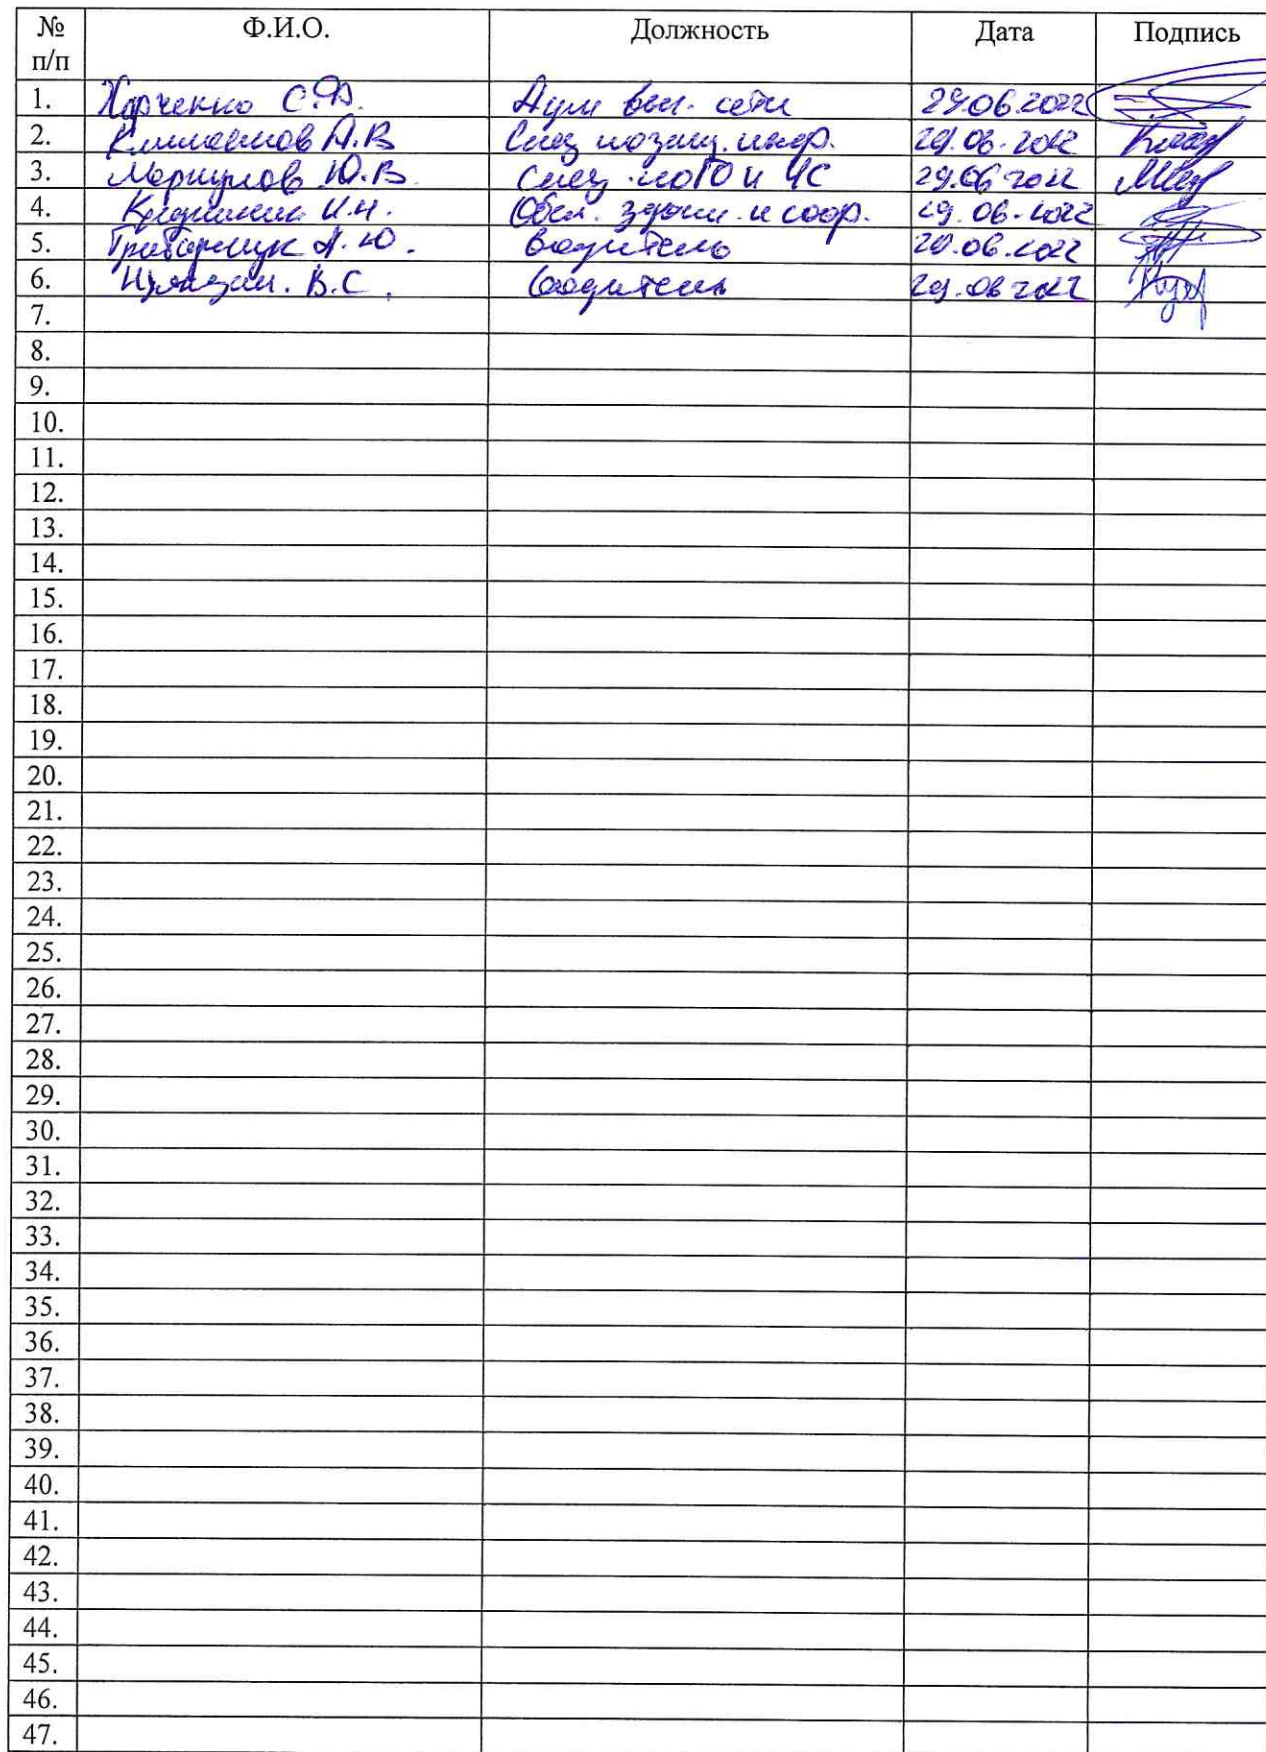 № п/п Ф.И.О. Должность Дата Подпись
1. Харченко С.Ф. выч. сети 29.06.2022
2. А.В Спец по защ. инф. 29.06.2022
3. Ю.В. Спец. по ГО и ЧС 29.06.2022
4. И.Н. Обсл. здани. и соор. 29.06.2022
5. А.Ю. Водитель 29.06.2022
6. В.С. Водитель 29.06.2022
7.
8.
9.
10.
11.
12.
13.
14.
15.
16.
17.
18.
19.
20.
21.
22.
23.
24.
25.
26.
27.
28.
29.
30.
31.
32.
33.
34.
35.
36.
37.
38.
39.
40.
41.
42.
43.
44.
45.
46.
47.